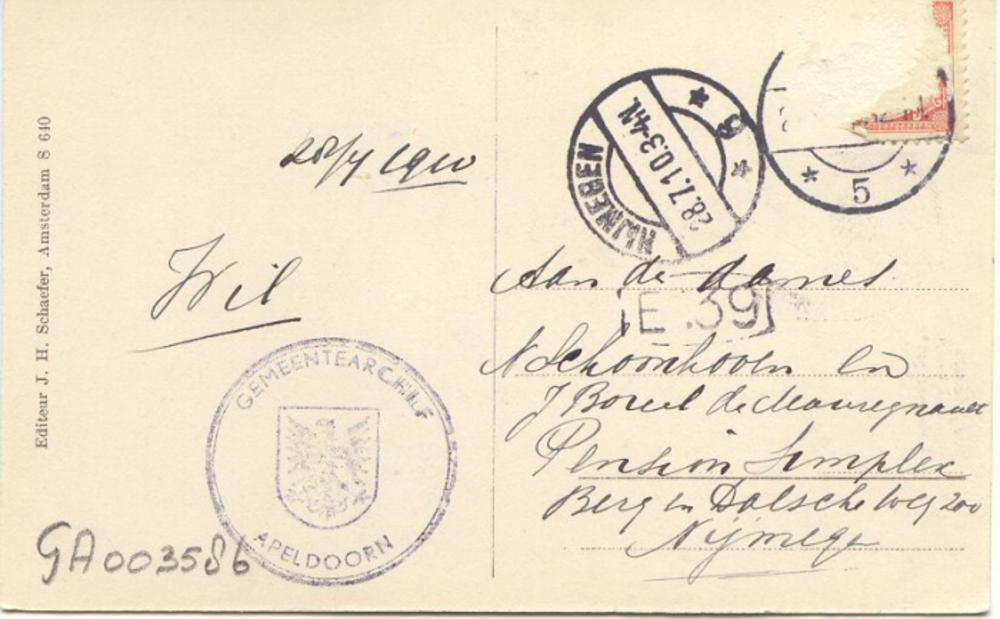 Editeur J. H. Schaefer, Amsterdam S 640
28/7 1910
Wil
GEMEENTEARCHIEF
APELDOORN
GA003586
NIJMEGEN
28.7.10.3-4N.
* 9 *
* 5 *
E.39
Aan de dames
N Schoonhoven en
J Boreel de Mauregnault
Pension Simplex
Berg en Dalsche weg 200
Nijmegen